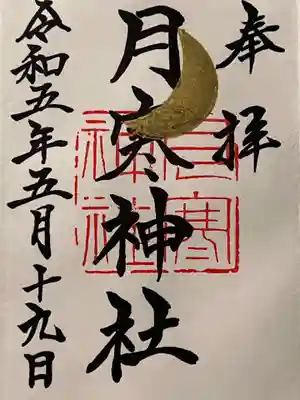 奉拝
月寒神社
月寒神社
令和五年五月十九日